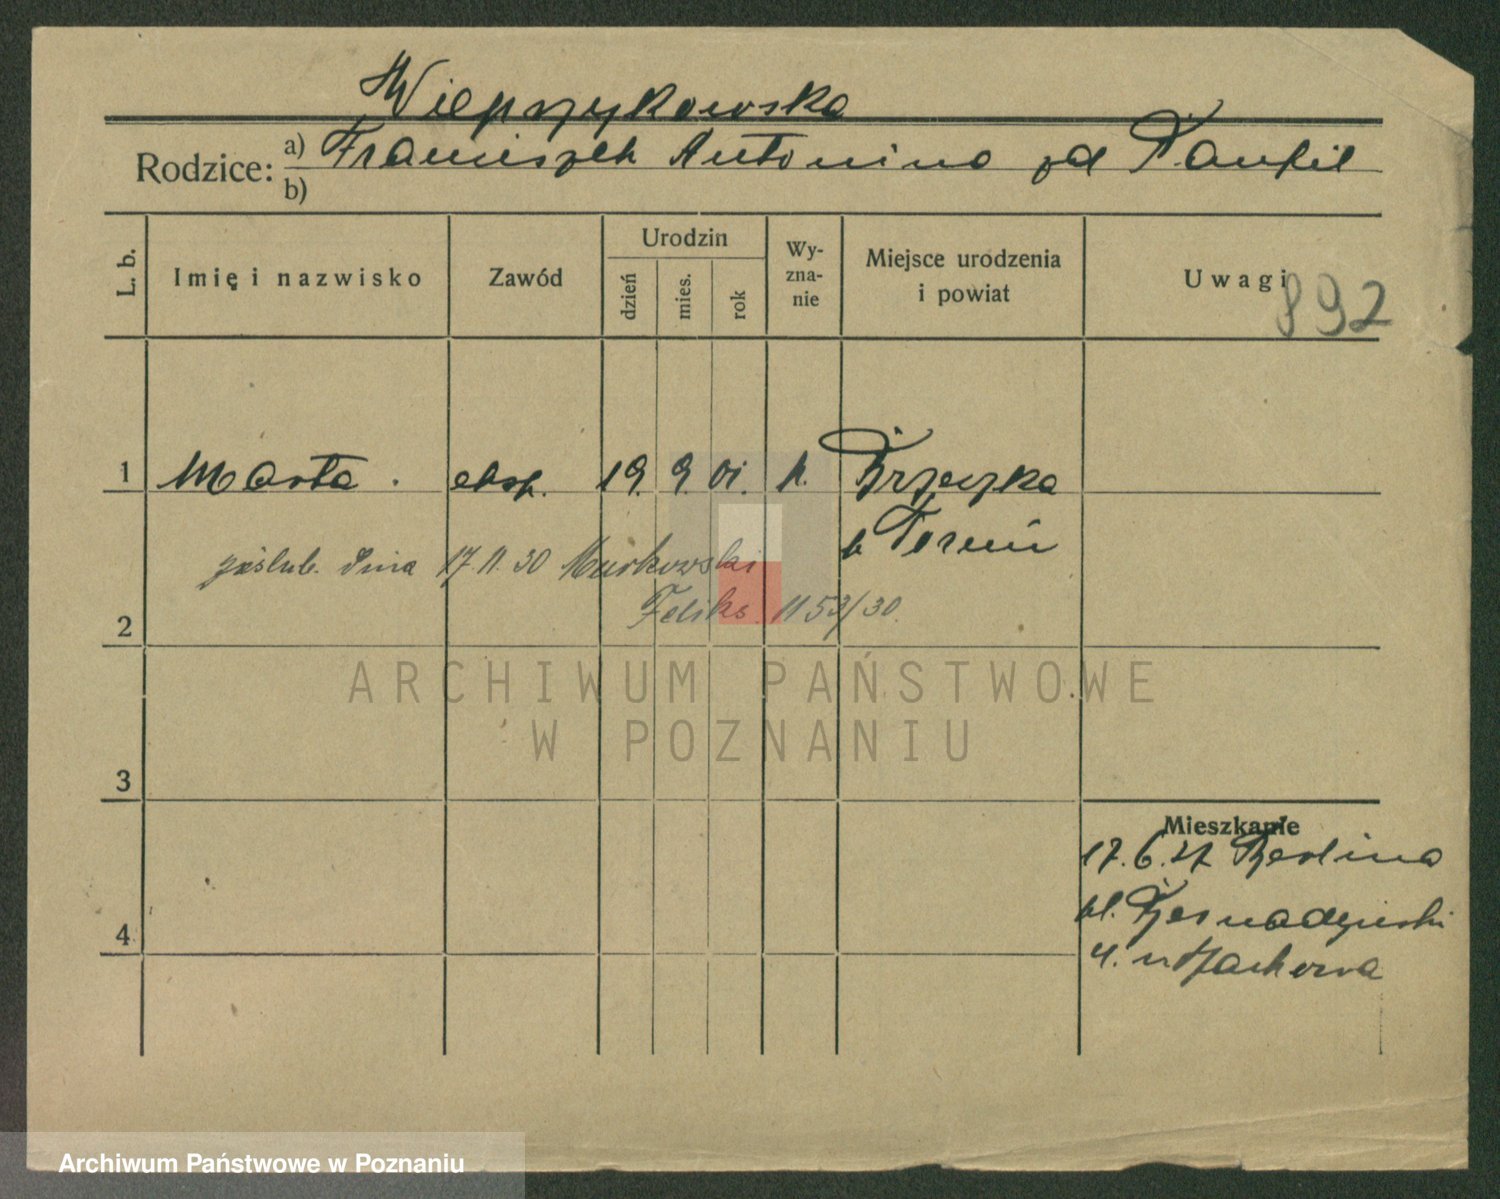 Wieprzykowska
Rodzice: a) Franciszek Antonina zd Panfil
b)
L. b.
Imię i nazwisko
Zawód
Urodzin
dzień
mies.
rok
Wy-
zna-
nie
Miejsce urodzenia
i powiat
Uwagi
892
1 Marta. eksp. 19. 9. 01. k.
Toruń
zaślub. dnia 17.11.30 Murkowski
Feliks. 1153/30.
2
3
4
Mieszkanie
17.6.27
ARCHIWUM PAŃSTWOWE
W POZNANIU
Archiwum Państwowe w Poznaniu